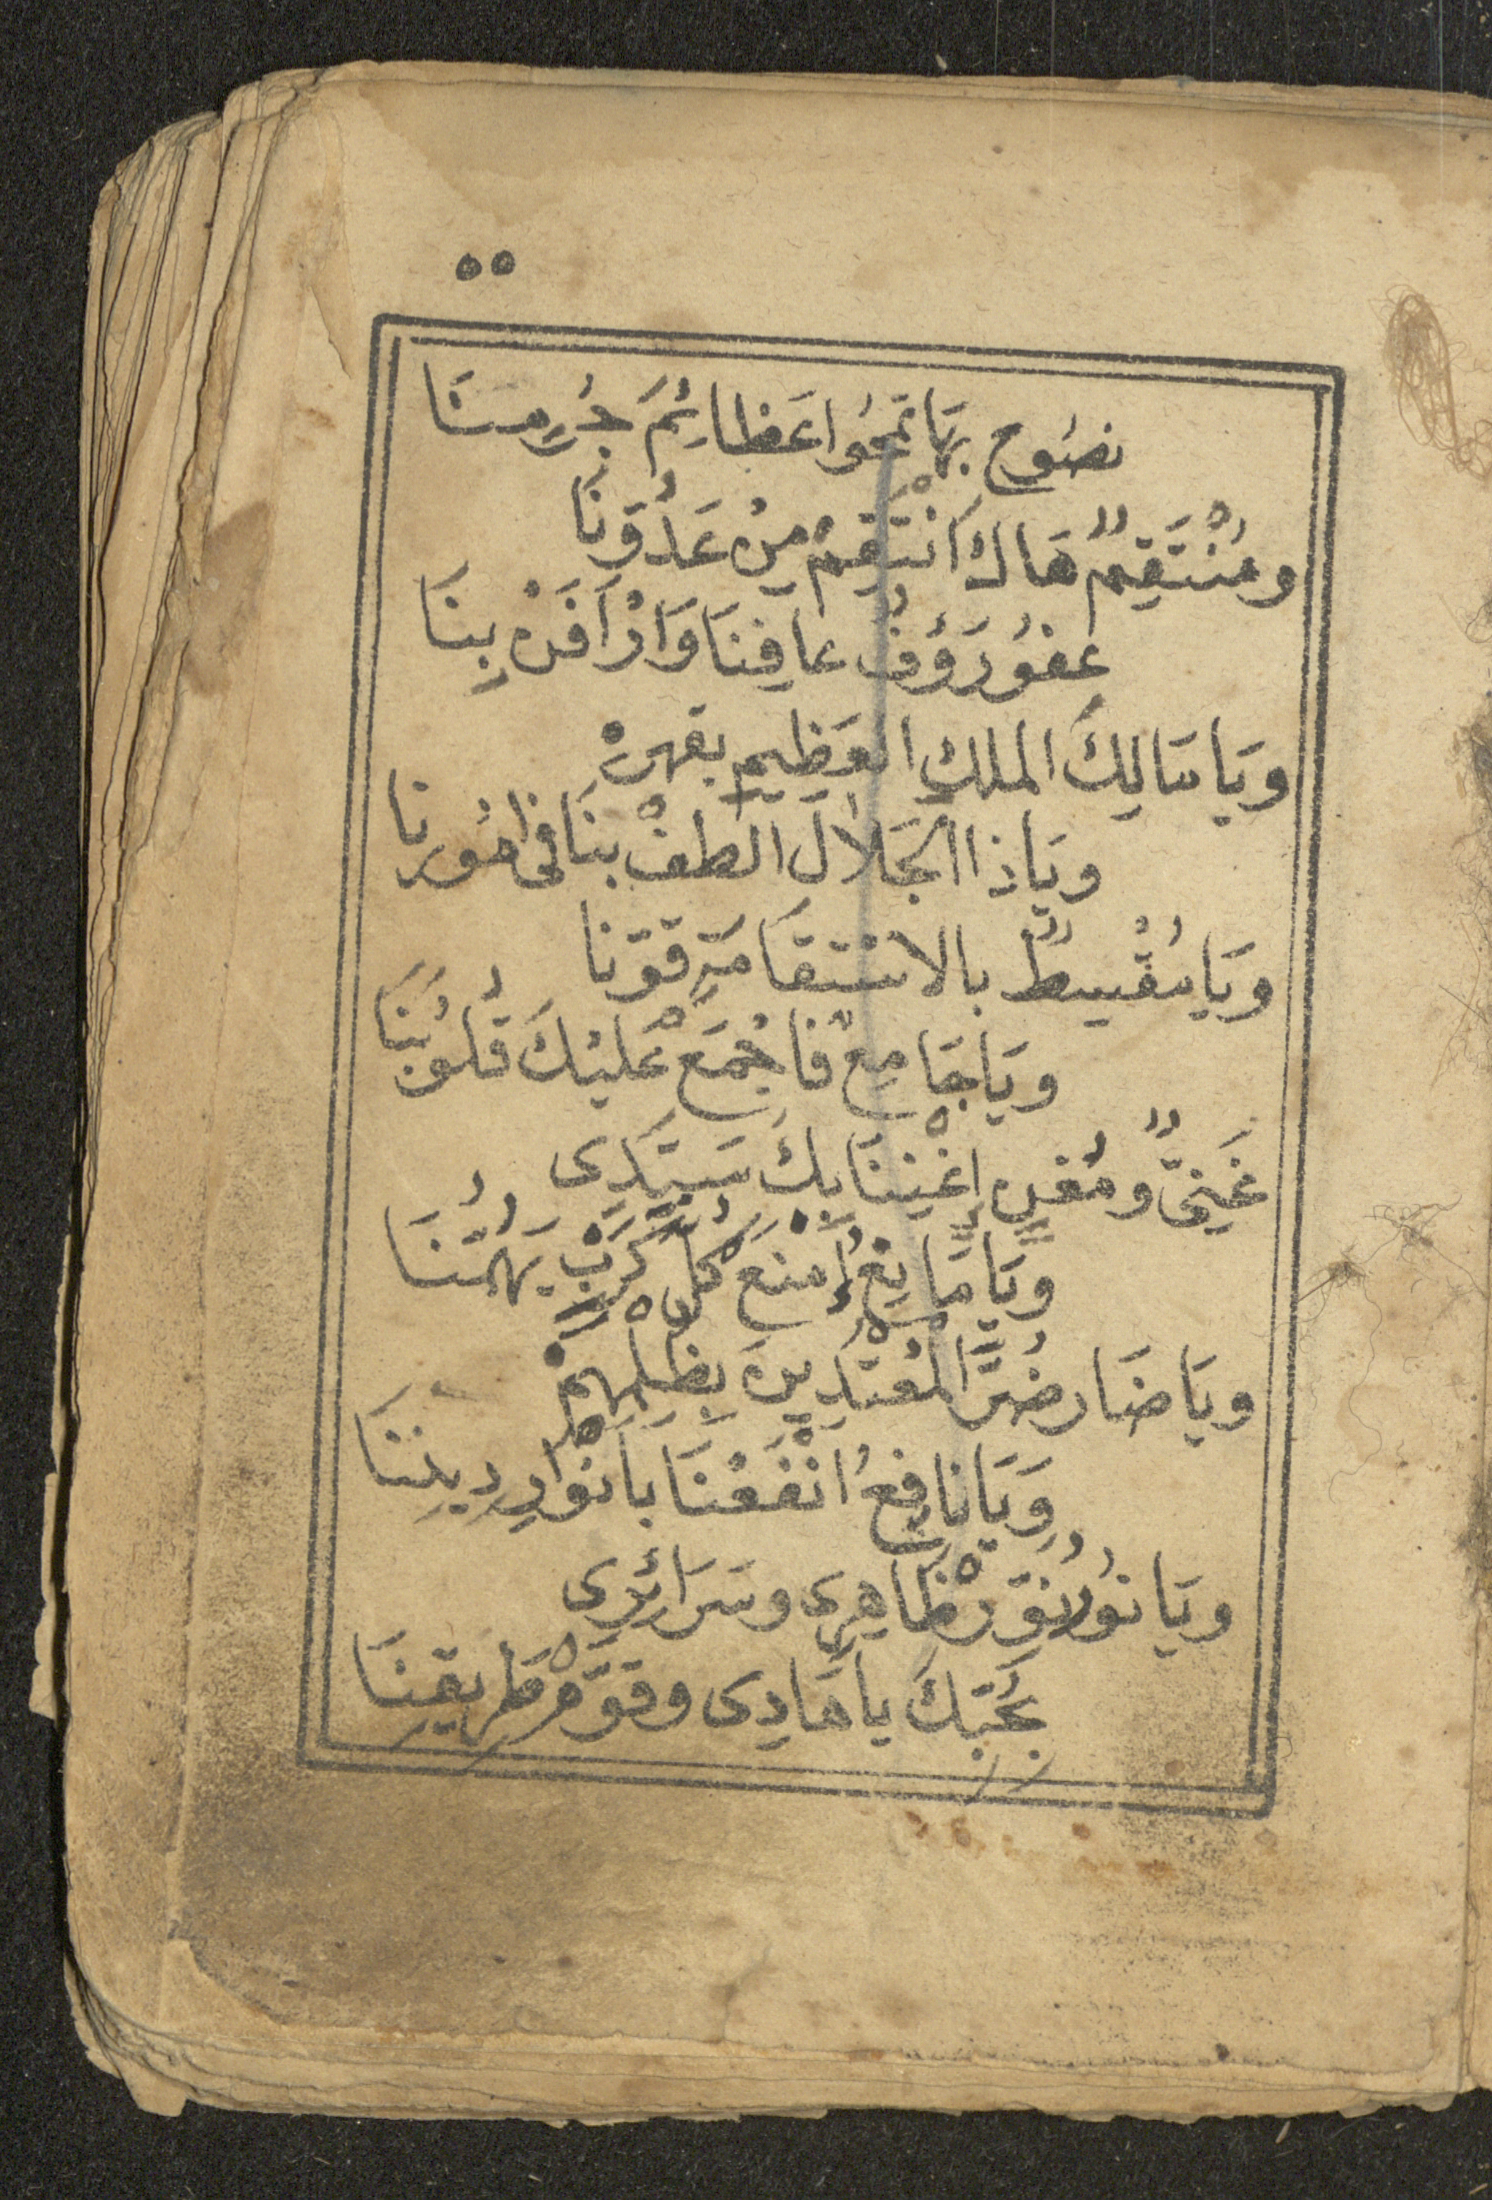 ٥٥
نصُوح بهَا تمحُوا عَظائِمَ جُرمنَا
ومُنْتَقِمٌ هَاكَ انْتَقِمْ مِنْ عَدُوِّنَا
عفوُ رَؤُفُ عافِنَا وَارْأَفَنْ بِنَا
ويَا مَالِكَ الملكِ العَظِيمِ بقهرْ
ويَاذا الجَلَالَ الْطفْ بنَا فى امُورنا
ويَا مُقْسِطٌ بالاسْتقَامَةِ قوّنا
ويَا جَامِعٌ فاجْمَعْ عَليْكَ قُلُوبَنَا
غَنِىٌّ ومُغنٍ اغْنِنَا بِكَ سَيِّدِى
ويَا مَانِعُ امْنعْ كُلَّ كَرْبٍ يُهِمُّنَا
ويَا ضَار ضُرَّ الْمُعْتَدِينَ بِظُلْمِهِمْ
وَيَا نافِعُ انْفَعْنَا بأنْوَارِ دِينِنَا
ويَا نوُرُ نوّرْ ظَاهِرِى وسَرَائرِى
بحُبّكَ يا هَادِى وقوّمْ طريقنَا